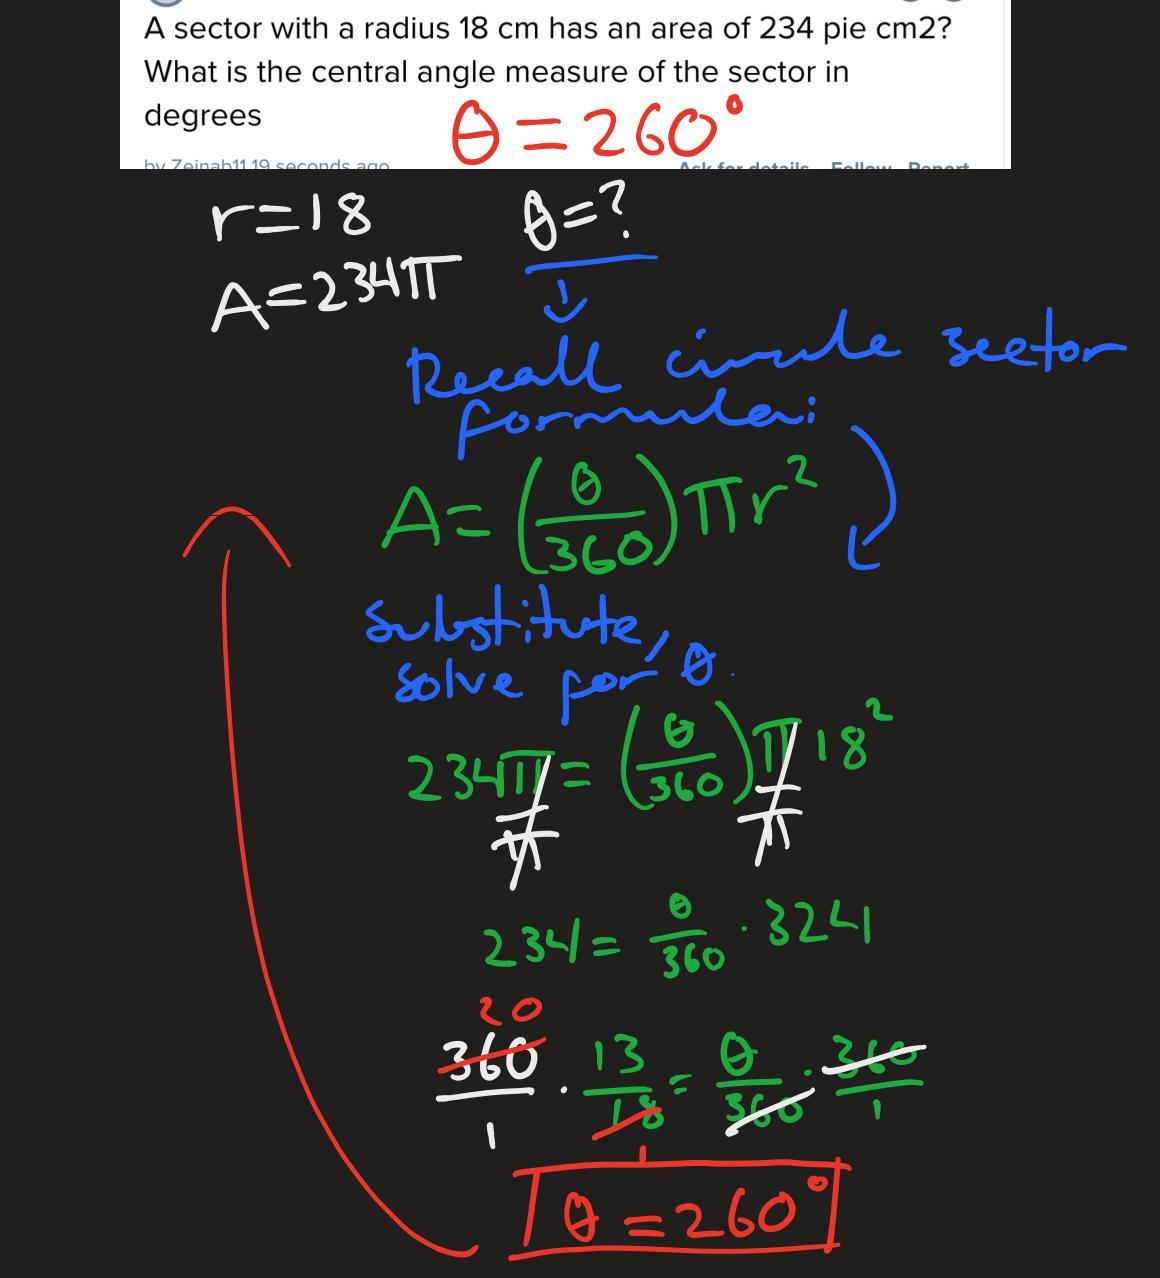 A sector with a radius 18 cm has an area of 234 pie cm2?
What is the central angle measure of the sector in
degrees
θ = 260°
by Zeinab11 19 seconds ago
Ask for details Follow Report
r=18 θ=?
A=234π
Recall circule sector
formula:
A=(θ/360)πr²
Substitute,
solve for θ.
234π/π = (θ/360)π/π 18²
234 = θ/360 · 324
20
360/1 · 13/18 = θ/360 · 360/1
1
θ = 260°